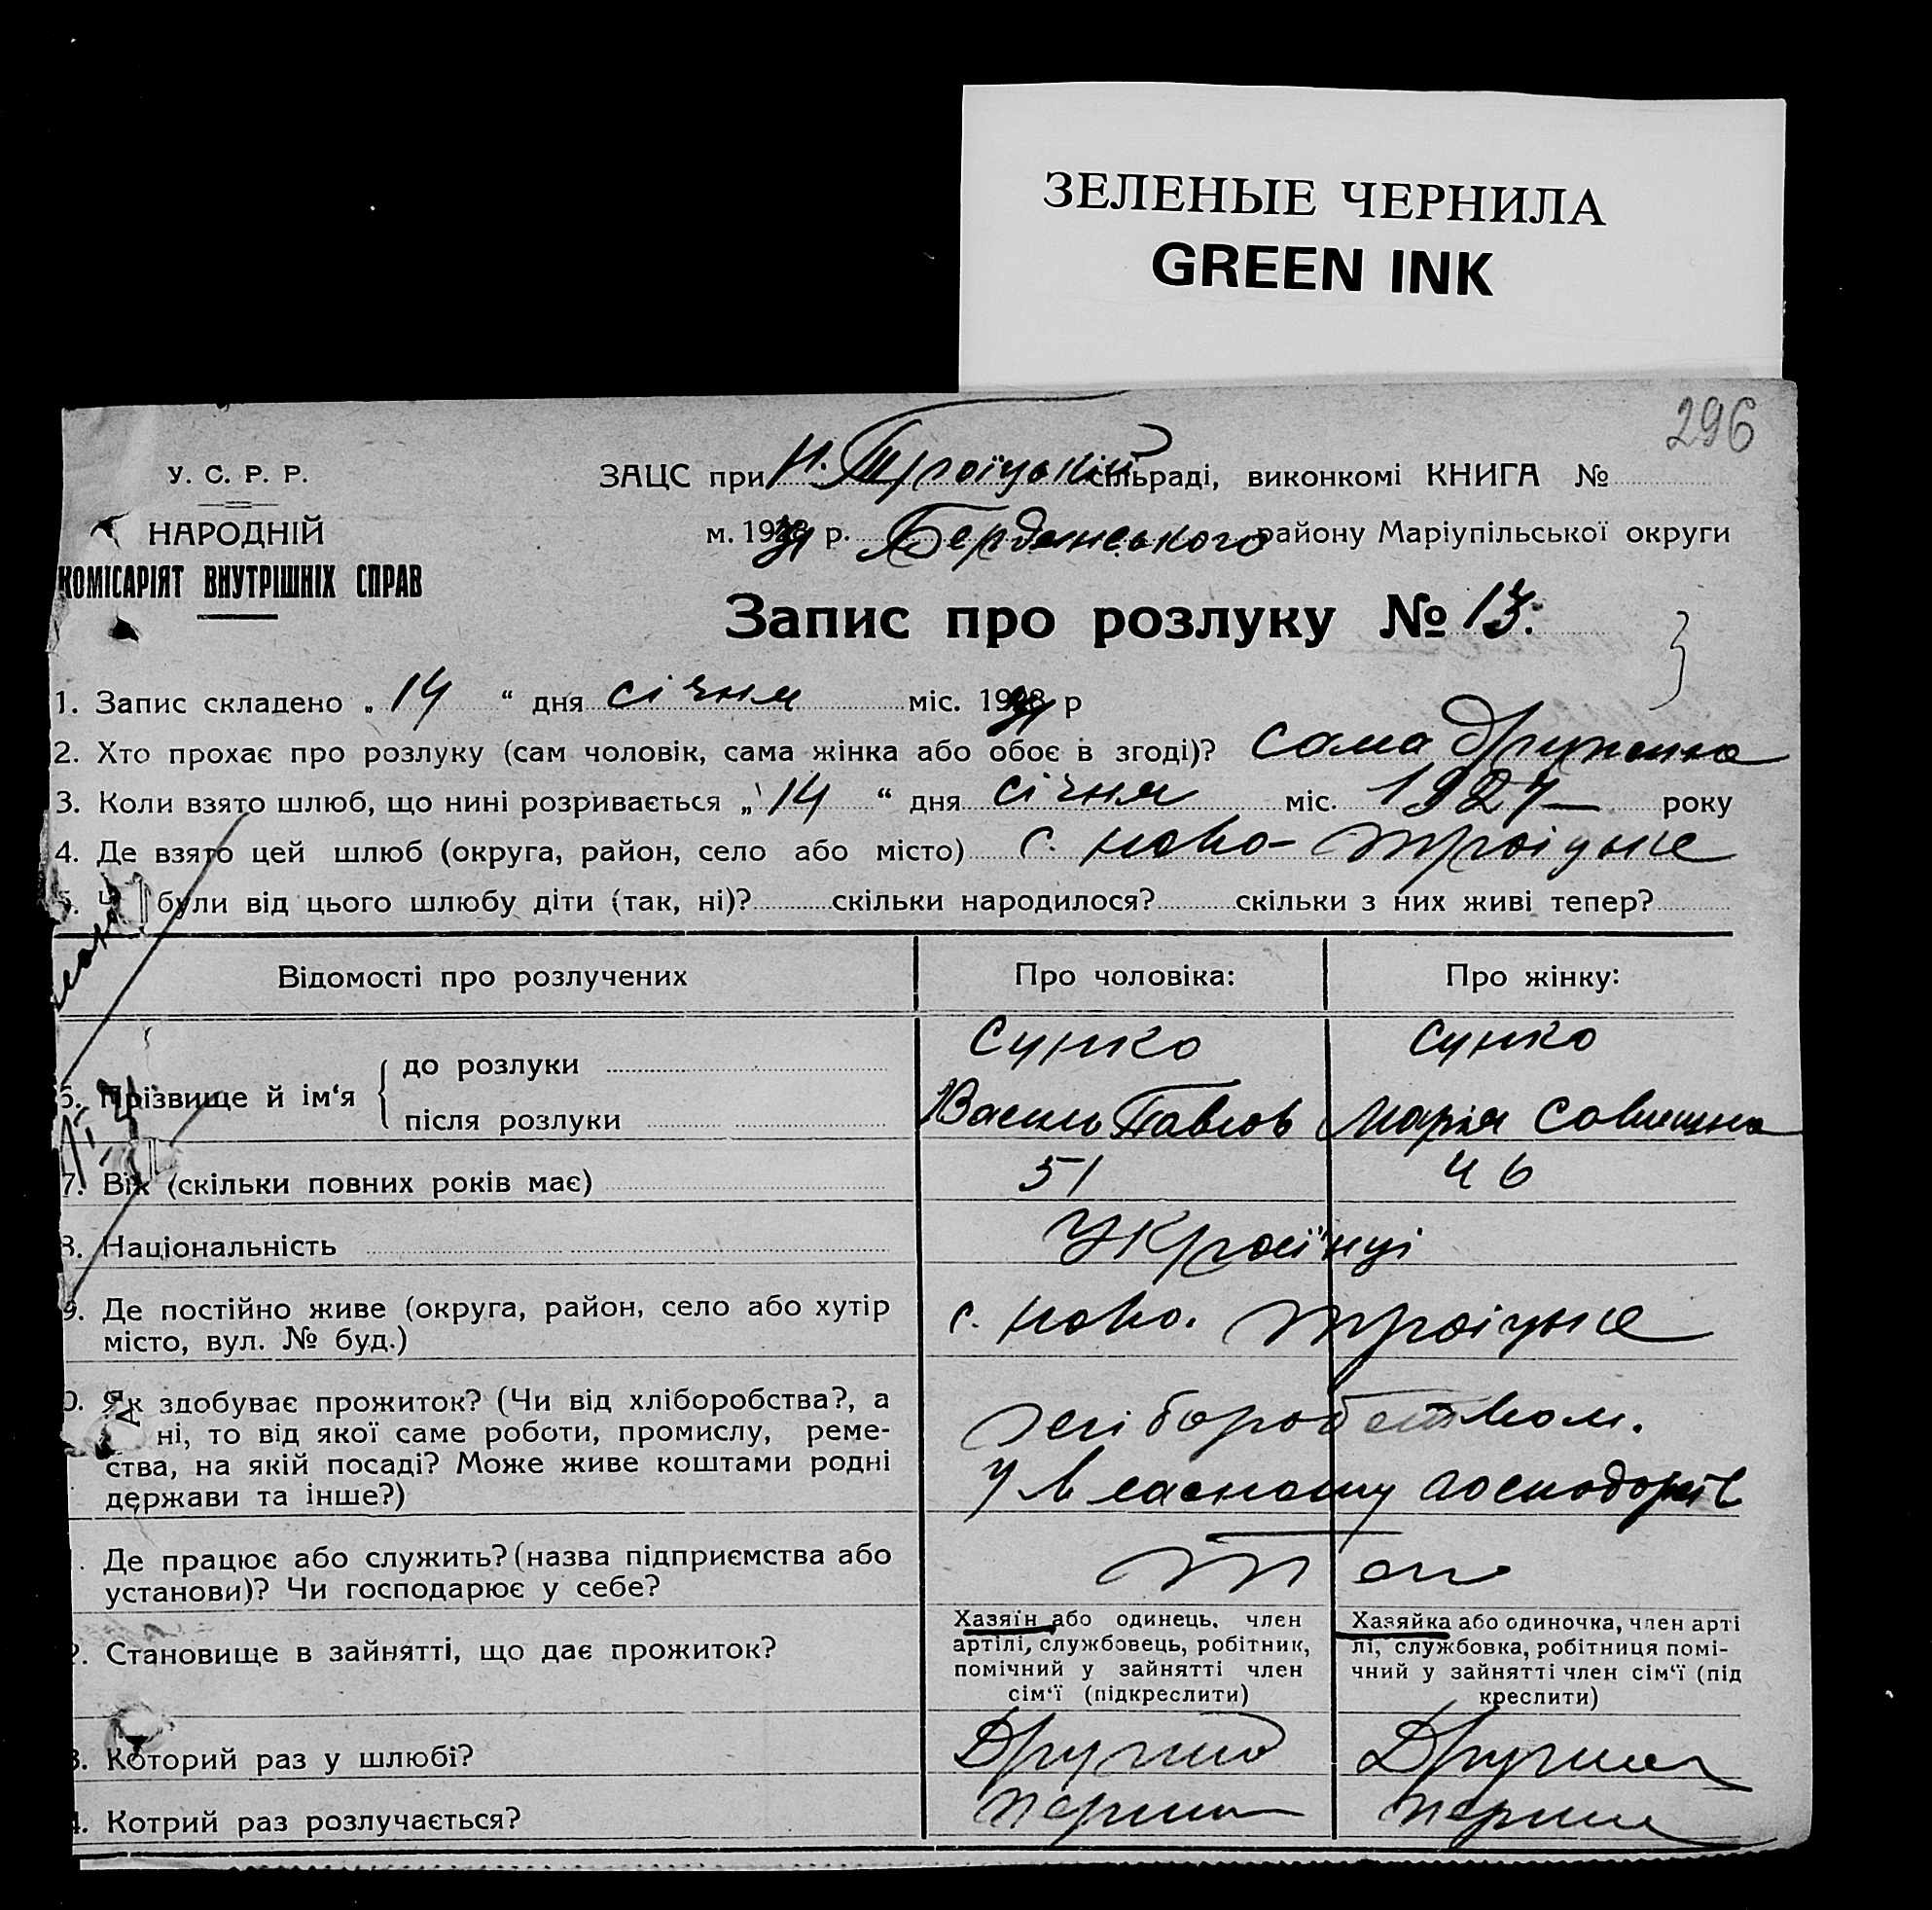 ЗЕЛЕНЫЕ ЧЕРНИЛА
GREEN INK
296
У. С. Р. Р.
НАРОДНІЙ
КОМІСАРІЯТ ВНУТРІШНІХ СПРАВ
ЗАЦС при Н. Троїцькій сільраді, виконкомі КНИГА №
м. 192 р. Бердянського району Маріупільської округи
Запис про розлуку № 13.
1. Запис складено „ 14 “ дня січня міс. 192 р
2. Хто прохає про розлуку (сам чоловік, сама жінка або обоє в згоді)? сама дружина
3. Коли взято шлюб, що нині розривається „ 14 “ дня січня міс. 1927 року
4. Де взято цей шлюб (округа, район, село або місто) с. Ново-Троіцьке
5. Чи були від цього шлюбу діти (так, ні)? скільки народилося? скільки з них живі тепер?
Відомості про розлучених Про чоловіка: Про жінку:
6. Прізвище й ім‘я { до розлуки Сунко Сунко
після розлуки Василь Павлов Марія
7. Вік (скільки повних років має) 51 46
8. Національність Украіїнці
9. Де постійно живе (округа, район, село або хутір
місто, вул. № буд.) с. Ново. Троіцьке
0. Як здобуває прожиток? (Чи від хліборобства?, а
ні, то від якої саме роботи, промислу, реме-
ства, на якій посаді? Може живе коштами родні
держави та інше?)
хліборобством.
У власному господарстві
. Де працює або служить? (назва підприємства або
установи)? Чи господарює у себе?
Так
2. Становище в зайнятті, що дає прожиток?
Хазяін або одинець, член
артілі, службовець, робітник,
помічний у зайнятті член
сім‘ї (підкреслити)
Хазяйка або одиночка, член арті
лі, службовка, робітниця помі-
чний у зайнятті член сім‘ї (під
креслити)
3. Которий раз у шлюбі? Другий Другий
4. Котрий раз розлучається? перший перший